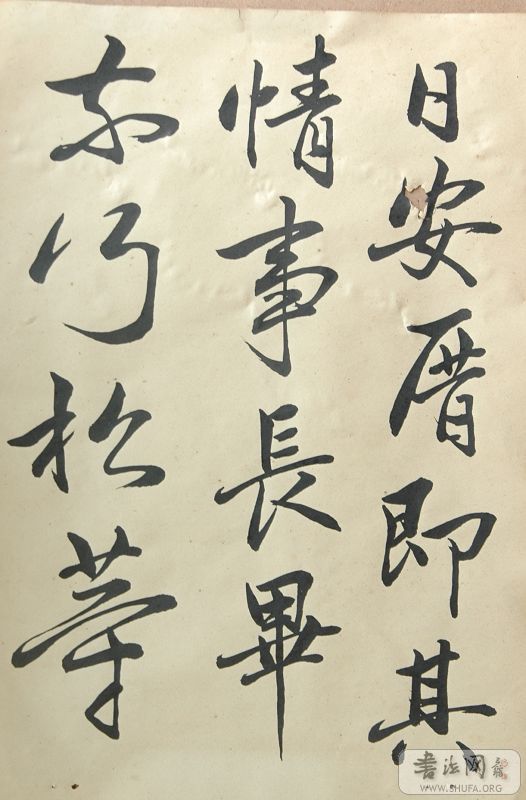 日安厝即其
情事長畢
奈何松等
書法网
WWW.SHUFA.ORG